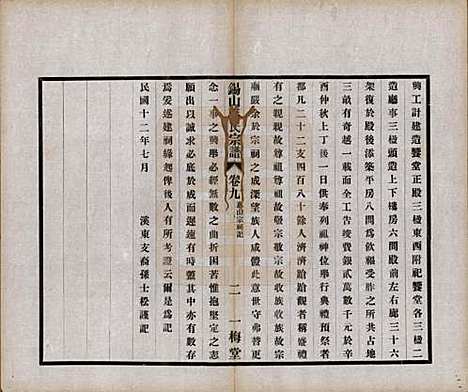 興工計建造饗堂正殿三楹東西附祀饗堂各三楹二
造廳事三楹頭造上下樓房六間左右廊三十六
架復於殿後添築平房八間爲庖湢之所共占地
三畝有奇越一載而全工告竣費銀貳萬數千元於辛
酉仲秋上丁後一日供奉列祖神位舉行典禮預祭者
都凡二十二支四百八十餘人濟濟蹌蹌觀者稱盛焉
有之親親故尊祖尊祖故敬宗敬宗故收族收族故宗
廟嚴余於宗祠之成深望族人咸體此意世守弗替更
念一事之興舉必經無數之曲折困苦惟抱堅定之志
願出以誠求必底於成而後可大可久
爲爰述建祠緣起俾後人有所考證云爾是爲記
民國十二年七月　　溪東支裔孫士松謹記
錫山 氏宗譜 卷九 宗祠記
二 一梅堂